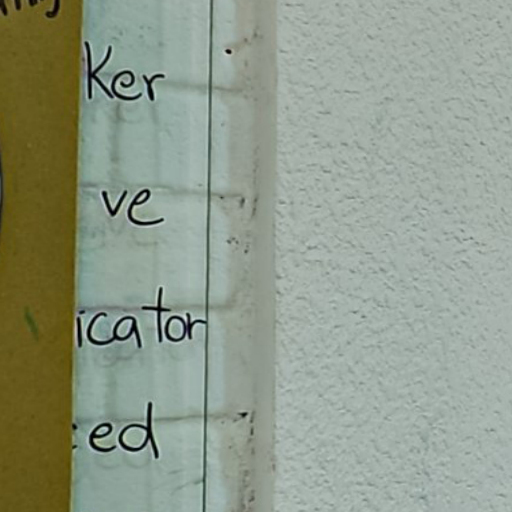 Ker
ve
icator
ed